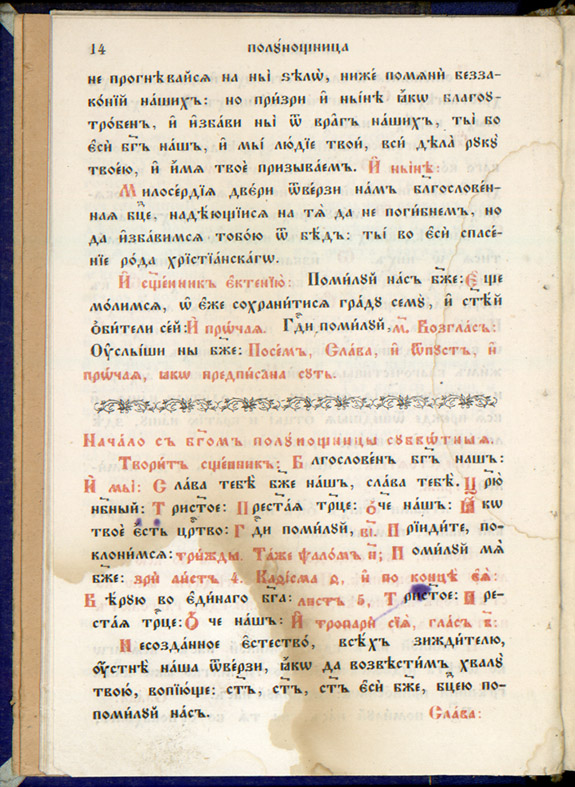 14 полꙋ́нощница
не прогнѣ́вайсѧ на ны̀ ѕѣлѡ̀, нижѐ помѧнѝ безза-
ко́нїй на́шихъ: но при́зри и҆ ны́нѣ ꙗ҆́кѡ благоꙋ-
тро́бенъ, и҆ и҆зба́ви ны̀ ѿ вра̑гъ на́шихъ, ты́ бо
є҆сѝ бг҃ъ на́шъ, и҆ мы̀ лю́дїе твоѝ, всѝ дѣла̀ рꙋкꙋ̀
твоє́ю, и҆ и҆́мѧ твоѐ призыва́емъ. И҆ ны́нѣ:
Милосе́рдїѧ две́ри ѿве́рзи на́мъ бл҃гослове́н-
наѧ бц҃е, надѣ́ющїисѧ на тѧ̀ да не поги́бнемъ, но
да и҆зба́вимсѧ тобо́ю ѿ бѣ́дъ: ты́ во є҆сѝ спасе́-
нїе ро́да хрїстїа́нскагѡ.
И҆ сщ҃е́нникъ є҆ктенїю̀: Поми́лꙋй на́съ бж҃е: Е҆ще
мо́лимсѧ, ѡ҆ є҆́же сохрани́тисѧ гра́дꙋ семꙋ̀, и҆ ст҃ѣ́й
ѻ҆би́тели се́й: И҆ прѡ́чаѧ. Гдⷭ҇и поми́лꙋй, м҃. Возгла́съ:
Оу҆слы́ши ны бж҃е: Посе́мъ, Сла́ва, и҆ ѿпꙋ́стъ, и҆
прѡ́чаѧ, ꙗ҆́кѡ предпи́сана сꙋ́ть.
Нача́ло съ бг҃омъ полꙋ́нощницы сꙋббѡ́тныѧ.
Твори́тъ сщ҃е́нникъ: Бл҃гослове́нъ бг҃ъ на́шъ:
И҆ мы̀: Сла́ва тебѣ̀ бж҃е на́шъ, сла́ва тебѣ̀. Цр҃ю̀
нб҃ный: Трист҃о́е: Прест҃а́ѧ трⷪ҇це: Ѻ҆́ч҃е на́шъ: Ꙗ҆́кѡ
твоѐ є҆́сть црⷭ҇тво: Гдⷭ҇и поми́лꙋй, в҃і. Прїиди́те, по-
клони́мсѧ: три́жды. Та́же ѱало́мъ н҃; Поми́лꙋй мѧ̀
бж҃е: зрѝ ли́стъ 4. Каѳі́сма ѳ҃, и҆ по концѣ̀ є҆ѧ̀:
Вѣ́рꙋю во є҆ди́наго бг҃а: ли́стъ 5, Трист҃о́е: Пре-
ст҃а́ѧ трⷪ҇це: Ѻ҆́ч҃е на́шъ: И҆ тропарѝ сїѧ̑, гла́съ в҃:
Несозда́нное є҆стество̀, всѣ́хъ зижди́телю,
ᲂу҆стнѣ̀ на́ша ѿве́рзи, ꙗ҆́кѡ да возвѣсти́мъ хвалꙋ̀
твою̀, вопїю́ще: ст҃ъ, ст҃ъ, ст҃ъ є҆сѝ бж҃е, бцⷣею по-
поми́лꙋй на́съ. Сла́ва: